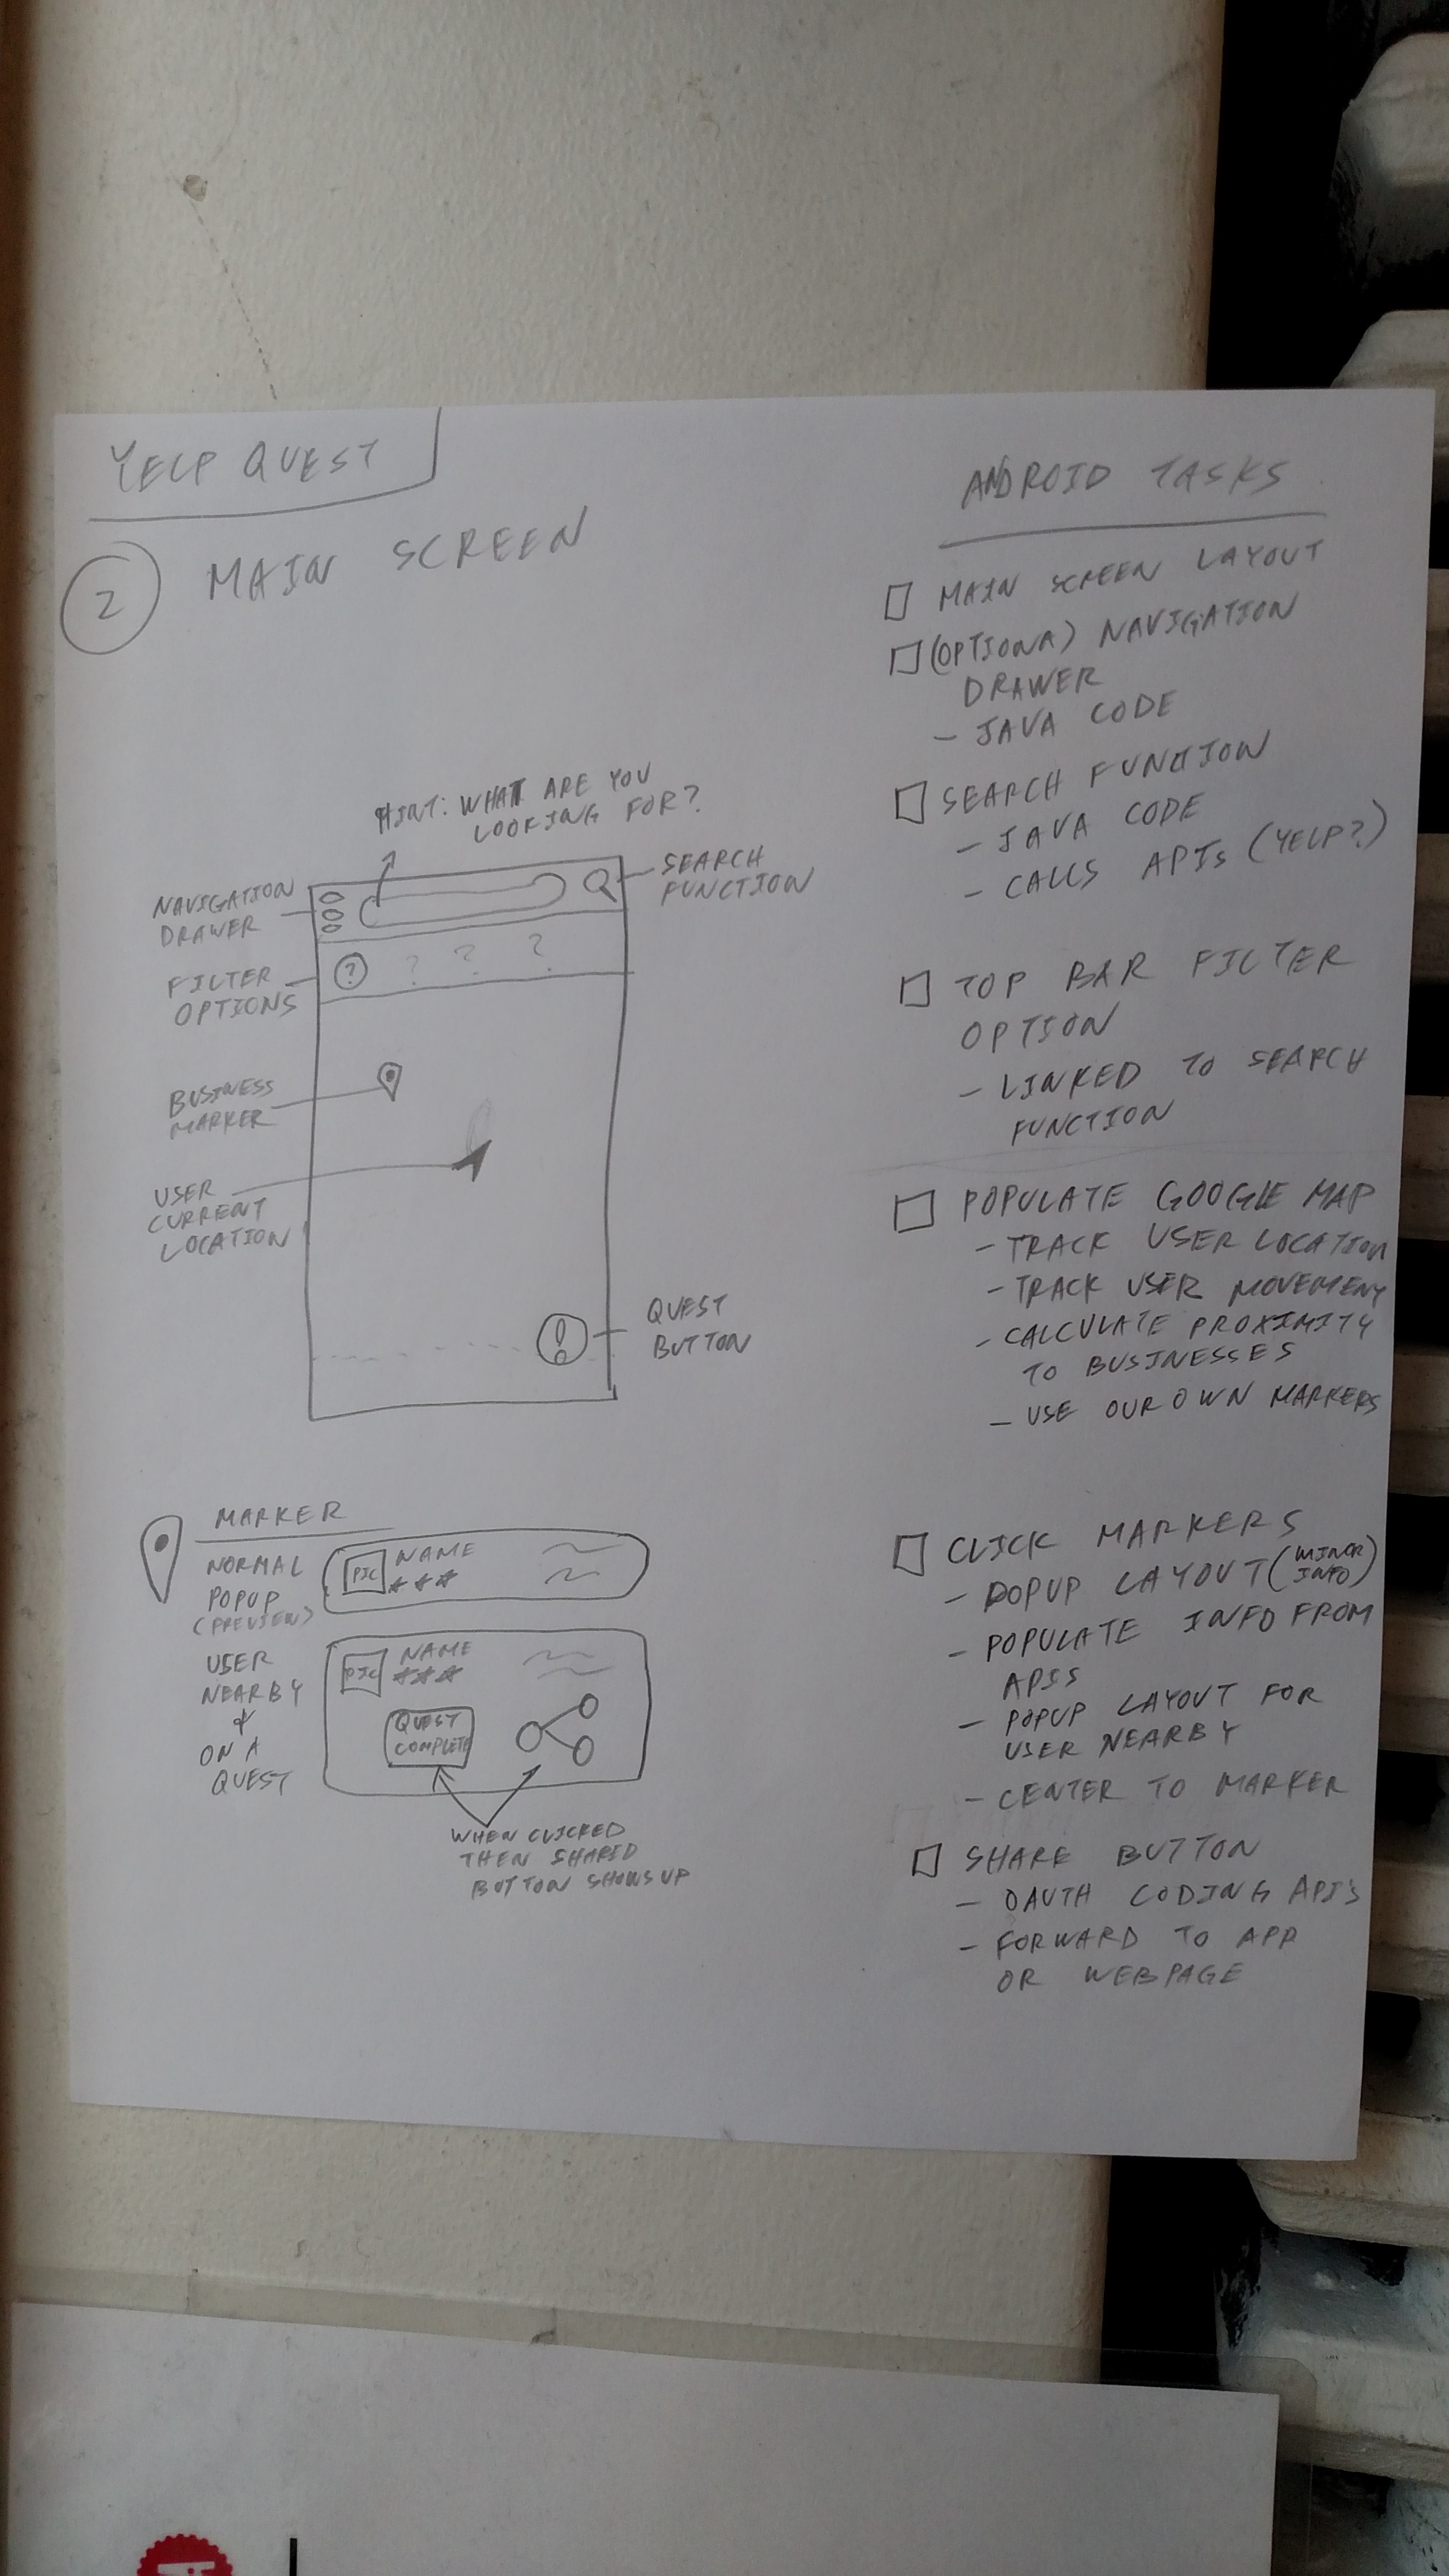 YELP QUEST
2 MAIN SCREEN
HINT: WHAT ARE YOU
LOOKING FOR?
NAVIGATION
DRAWER
SEARCH
FUNCTION
FILTER
OPTIONS
? ? ? ?
BUSINESS
MARKER
USER
CURRENT
LOCATION
QUEST
BUTTON
!
MARKER
NORMAL
POPUP
(PREVIEW)
PIC NAME
USER
NEARBY
&
ON A
QUEST
PIC NAME
QUEST
COMPLETE
WHEN CLICKED
THEN SHARED
BUTTON SHOWS UP
ANDROID TASKS
MAIN SCREEN LAYOUT
(OPTIONA) NAVIGATION
DRAWER
- JAVA CODE
SEARCH FUNCTION
- JAVA CODE
- CALLS APIs (YELP?)
TOP BAR FILTER
OPTION
- LINKED TO SEARCH
FUNCTION
POPULATE GOOGLE MAP
- TRACK USER LOCATION
- TRACK USER MOVEMENT
- CALCULATE PROXIMITY
TO BUSINESSES
- USE OUR OWN MARKERS
CLICK MARKERS
- POPUP LAYOUT (MINOR
INFO)
- POPULATE INFO FROM
APIS
- POPUP LAYOUT FOR
USER NEARBY
- CENTER TO MARKER
SHARE BUTTON
- OAUTH CODING API'S
- FORWARD TO APP
OR WEBPAGE